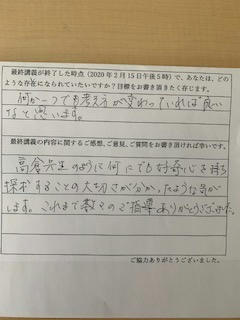 最終講義が終了した時点（2020年2月15日午後5時）で、あなたは、どの
ような存在になられていたいですか？目標をお書き頂きたく存じます。
何か一つでも考え方が変わっていれば良い
なと思います。
最終講義の内容に関するご感想、ご意見、ご質問をお書き頂ければ幸いです。
高倉先生のように何にでも好奇心を持ち
探求することの大切さが分かったような気が
します。これまで数々のご指導ありがとうございました。
ご協力ありがとうございました。